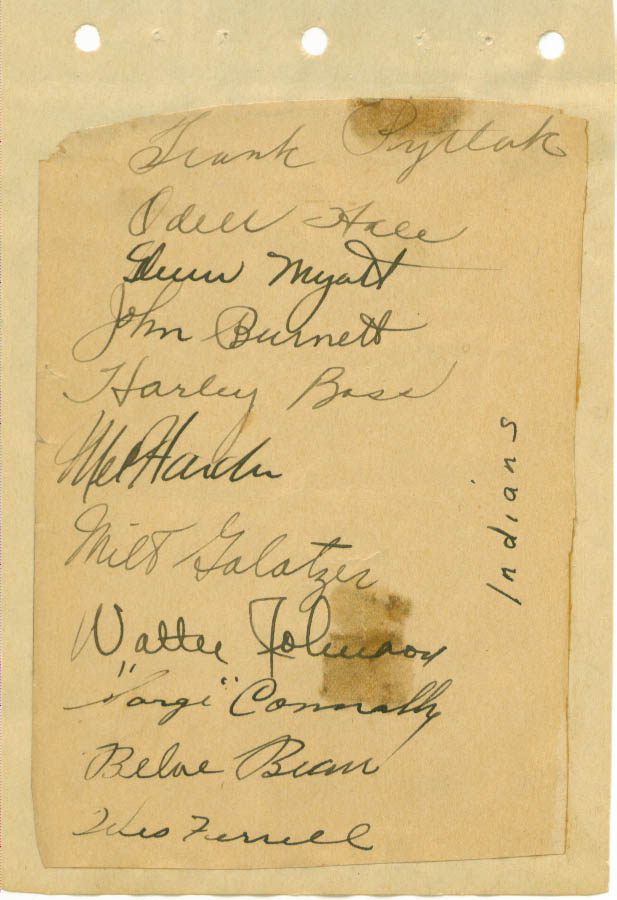 Frank Pytlak
Odell Hale
Glenn Myatt
John Burnett
Harley Boss
Mel Harder
Milt Galatzer
Walter Johnson
"Sarge" Connally
Beloe Bean
Wes Ferrell
Indians